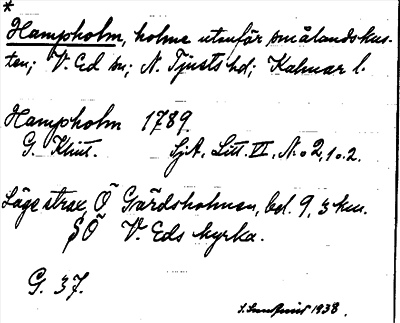 *
Hampholm, holme utanför smålandskus-
ten; V. Ed sn; N. Tjusts hd; Kalmar l.
Hampholm 1789.
G. Klint. SjA, Litt. VI, N:o 2, 1 o. 2.
Läge strax Ö Gärdsholmen, bel. 9,3 km.
SÖ V. Eds kyrka.
G. 37.
1938.